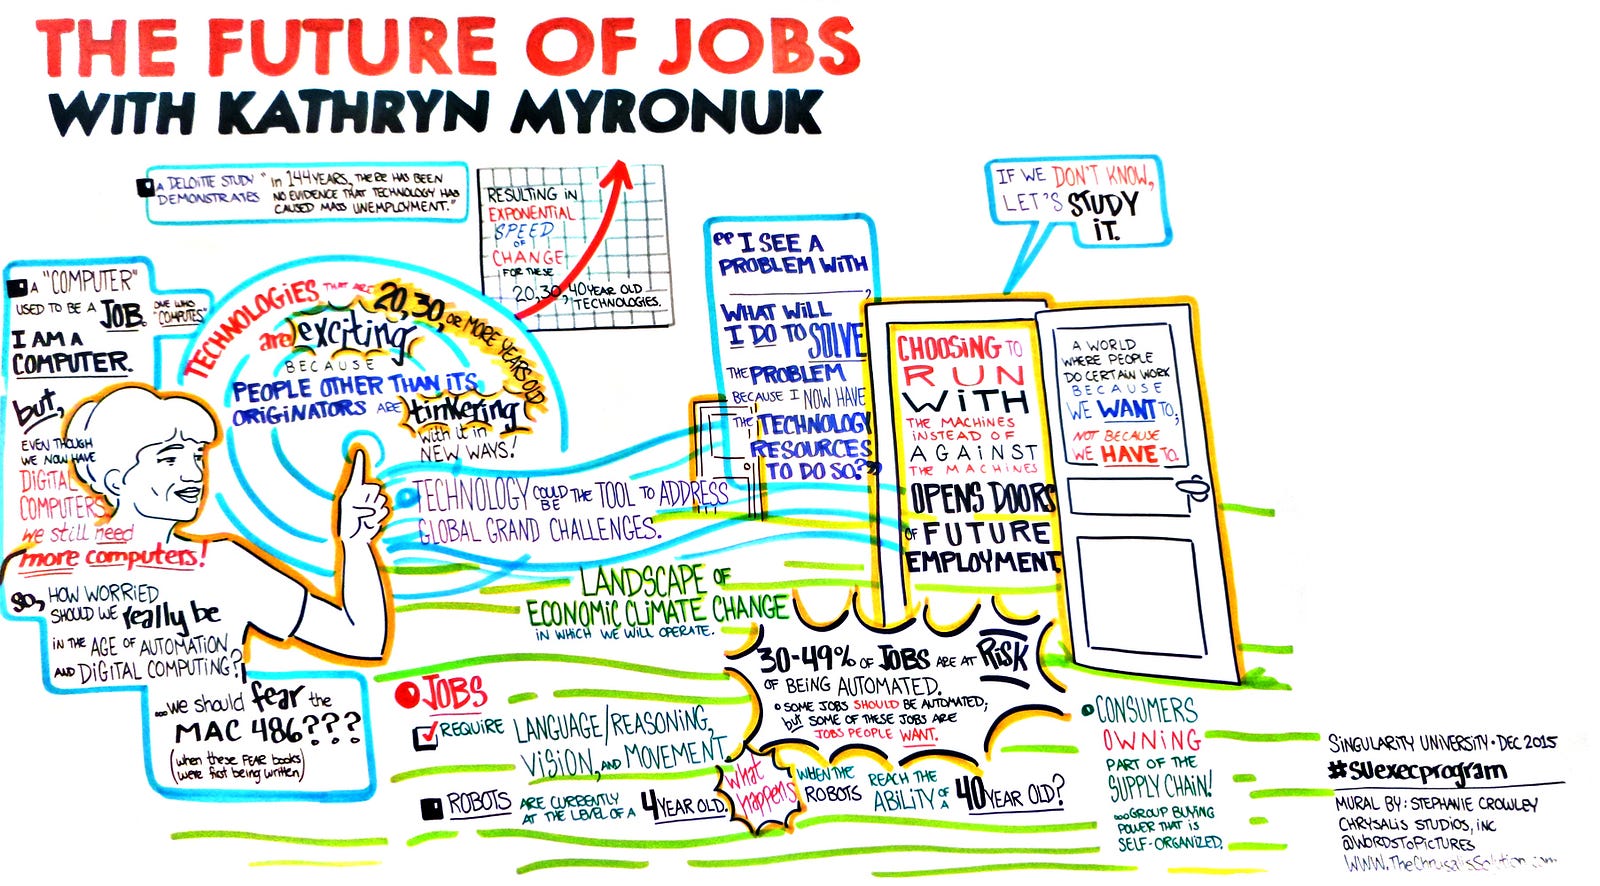 THE FUTURE OF JOBS
WITH KATHRYN MYRONUK
A DELOITTE STUDY
DEMONSTRATES
"in 144 YEARS, THERE HAS BEEN
NO EVIDENCE THAT TECHNOLOGY HAS
CAUSED MASS UNEMPLOYMENT."
RESULTING IN
EXPONENTIAL
SPEED
OF
CHANGE
FOR THESE
20, 30, 40 YEAR OLD
TECHNOLOGIES.
A "COMPUTER"
USED TO BE A JOB.
"ONE WHO
COMPUTES"
I AM A
COMPUTER.
but,
EVEN THOUGH
WE NOW HAVE
DIGITAL
COMPUTERS
we still need
more computers!
SO, HOW WORRIED
SHOULD WE really be
IN THE AGE OF AUTOMATION
AND DIGITAL COMPUTING?
...we should fear the
MAC 486???
(when these FEAR books
were first being written)
TECHNOLOGIES THAT ARE 20, 30, OR MORE YEARS OLD
are exciting
BECAUSE
PEOPLE OTHER THAN ITS
ORIGINATORS ARE tinkering
with it in
NEW WAYS!
TECHNOLOGY COULD BE THE TOOL TO ADDRESS
GLOBAL GRAND CHALLENGES.
"I SEE A
PROBLEM WITH
________,
WHAT WILL
I DO TO SOLVE
THE PROBLEM
BECAUSE I NOW HAVE
THE TECHNOLOGY
RESOURCES
TO DO SO?"
IF WE DON'T KNOW,
LET'S STUDY
IT.
CHOOSING TO
RUN
WITH
THE MACHINES
INSTEAD OF
AGAINST
THE MACHINES
OPENS DOORS
OF FUTURE
EMPLOYMENT
A WORLD
WHERE PEOPLE
DO CERTAIN WORK
BECAUSE
WE WANT TO;
NOT BECAUSE
WE HAVE TO.
LANDSCAPE OF
ECONOMIC CLIMATE CHANGE
IN WHICH WE WILL OPERATE.
30-49% OF JOBS ARE AT RISK
OF BEING AUTOMATED.
SOME JOBS SHOULD BE AUTOMATED;
but SOME OF THESE JOBS ARE
JOBS PEOPLE WANT.
JOBS
REQUIRE LANGUAGE/REASONING,
VISION, AND MOVEMENT.
ROBOTS ARE CURRENTLY
AT THE LEVEL OF A 4 YEAR OLD.
what
happens
WHEN THE
ROBOTS
REACH THE
ABILITY OF A
40 YEAR OLD?
CONSUMERS
OWNING
PART OF THE
SUPPLY CHAIN!
...GROUP BUYING
POWER THAT IS
SELF-ORGANIZED.
SINGULARITY UNIVERSITY • DEC 2015
#SUexecprogram
MURAL BY: STEPHANIE CROWLEY
CHRYSALIS STUDIOS, INC
@WORDSTOPICTURES
WWW.TheChrysalisSolution.com